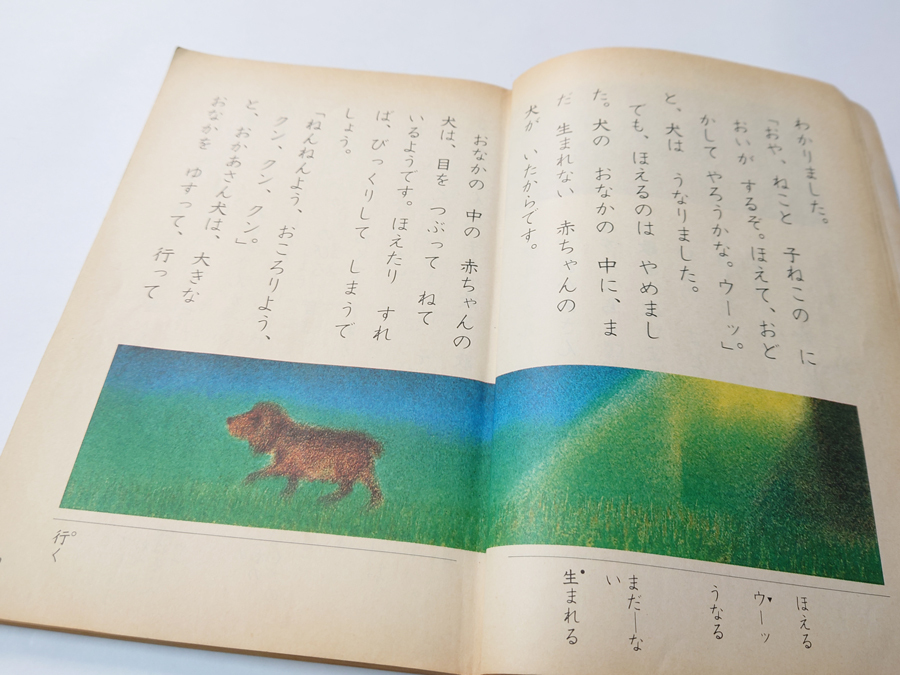 わかりました。
「おや、ねこと 子ねこの に
おいが するぞ。ほえて、おど
かして やろうかな。ウーッ」。
と、犬は うなりました。
ても、ほえるのは やめまし
た。犬の おなかの 中に、ま
だ 生まれない 赤ちゃんの
犬が いたからです。
おなかの 中の 赤ちゃんの
犬は、目を つぶって ねて
いるようです。ほえたり すれ
ば、びっくりして しまうで
しょう。
「ねんねんよう、おころりよう、
クン、クン、クン」。
と、おかあさん犬は、大きな
おなかを ゆすって、行って
ほえる
ウーッ
うなる
まだ―な
い
生まれる
行く